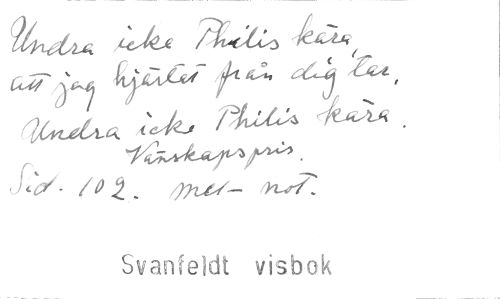 Undra icke Philis kära,
att jag hjärtat från dig tar,
Undra icke Philis kära.
Vänskapspris.
Sid. 102. mel- not.
Svanfeldt visbok